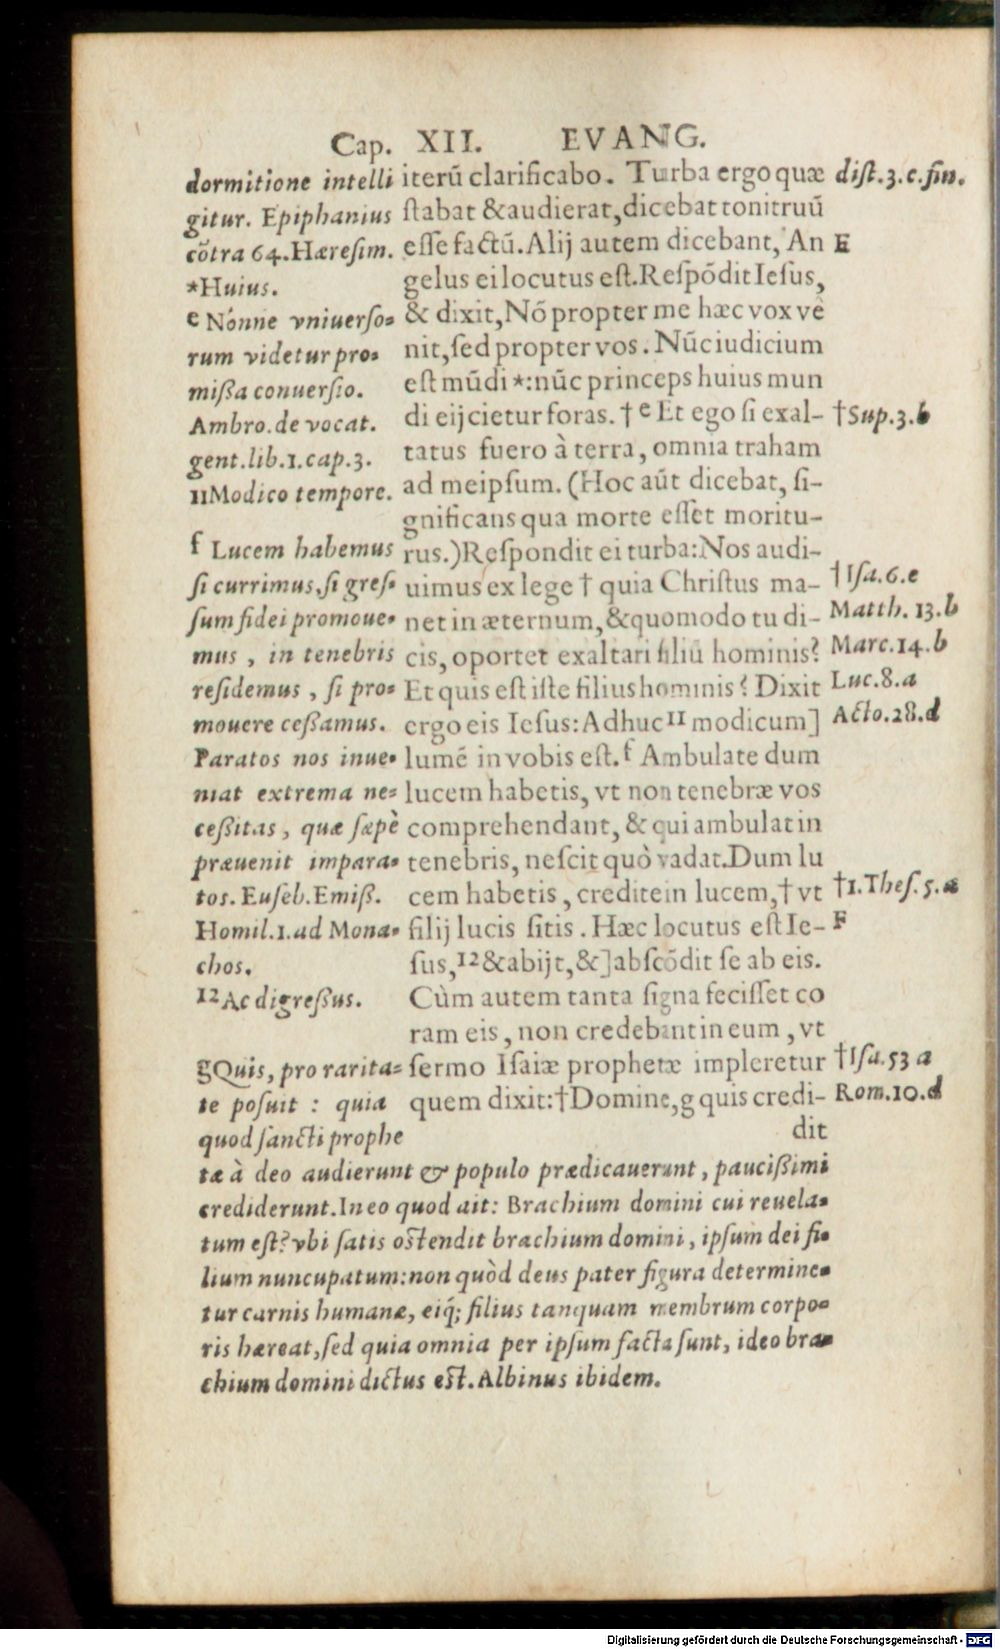 Cap. XII. EVANG.
dormitione intelli
gitur. Epiphanius
cõtra 64. Hæresim.
*Huius.
e Nónne vniuerso=
rum videtur pro=
mißa conuersio.
Ambro. de vocat.
gent. lib. 1. cap. 3.
11 Modico tempore.
f Lucem habemus
si currimus, si gres=
sum fidei promoue=
mus, in tenebris
residemus, si pro=
mouere ceßamus.
Paratos nos inue=
niat extrema ne=
ceßitas, quæ sæpè
præuenit impara=
tos. Euseb. Emiß.
Homil. 1. ad Mona=
chos.
12 Ac digreßus.
g Quis, pro rarita=
te posuit : quia
quod sancti prophe
iterũ clarificabo. Turba ergo quæ
stabat & audierat, dicebat tonitruũ
esse factũ. Alij autem dicebant, An
gelus ei locutus est. Respõdit Iesus,
& dixit, Nõ propter me hæc vox ve
nit, sed propter vos. Nũc iudicium
est mũdi *: nũc princeps huius mun
di eijcietur foras. † e Et ego si exal-
tatus fuero à terra, omnia traham
ad meipsum. (Hoc aũt dicebat, si-
gnificans qua morte esset moritu-
rus.) Respondit ei turba: Nos audi-
uimus ex lege † quia Christus ma-
net in æternum, & quomodo tu di-
cis, oportet exaltari filiũ hominis?
Et quis est iste filius hominis? Dixit
ergo eis Iesus: Adhuc 11 modicum]
lumẽ in vobis est. f Ambulate dum
lucem habetis, vt non tenebræ vos
comprehendant, & qui ambulat in
tenebris, nescit quò vadat. Dum lu
cem habetis, credite in lucem, † vt
filij lucis sitis. Hæc locutus est Ie-
sus, 12 & abijt, &] abscõdit se ab eis.
Cùm autem tanta signa fecisset co
ram eis, non credebant in eum, vt
sermo Isaiæ prophetæ impleretur
quem dixit: † Domine, g quis credi-
dit
dist. 3. c. fin.
E
† Sup. 3. b
† Isa. 6. e
Matth. 13. b
Marc. 14. b
Luc. 8. a
Acto. 28. d
† 1. Thes. 5. a
F
† Isa. 53 a
Rom. 10. d
tæ à deo audierunt & populo prædicauerunt, paucißimi
crediderunt. In eo quod ait: Brachium domini cui reuela=
tum est? vbi satis ostendit brachium domini, ipsum dei fi=
lium nuncupatum: non quòd deus pater figura determine=
tur carnis humanæ, eiq́; filius tanquam membrum corpo=
ris hæreat, sed quia omnia per ipsum facta sunt, ideo bra=
chium domini dictus est. Albinus ibidem.
Digitalisierung gefördert durch die Deutsche Forschungsgemeinschaft - DFG